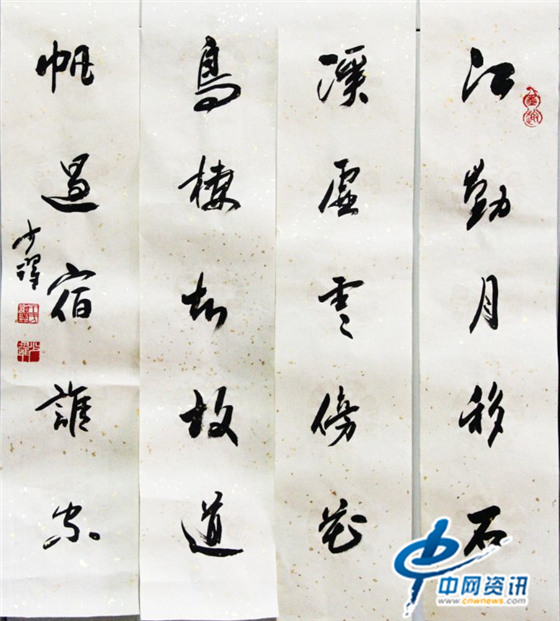 江動月移石
溪虛雲傍花
鳥棲知故道
帆過宿誰家
中网资讯
www.cnwnews.com